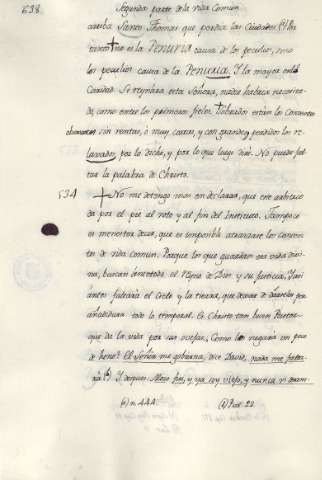 638.
Segunda parte de la vida Comun
arriba Santo Thomas que perdia las Ciudades
no es la Penuria causa de los peculios, sino
los peculios causa de la Penuria. Y la mayor
Caridad. Se reynara esta Señora, nada
como entre los primeros fieles. Sobrados están los Conventos
sin rentas, ó muy cortas, y con grandes perdidos los
relaxados, por lo dicho, y por lo que luego diré. No puede fal-
tar la palabra de Christo.
534 No me detengo mas en declarar, que este
da por el pie al voto y al fin del Instituto. Tampoco
es menester decir, que es imposible atrasarse los conven-
tos de vida comun. Porque los que guardan esa vida divi-
na, buscan el Reyno de Dios y su Justicia, y
antes faltaria el cielo y la tierra, que dexar de darseles por
añadidura todo lo temporal. Es Christo tan buen Pastor
que da la vida por sus ovejas, Como les negaria un
de heno? El Señor me gobierna, dice David, nada me falta-
rá (b) Y despues: Mozo fui, y ya soy viejo, y nunca vi
(a) n. 444. (b) Psal. 22.